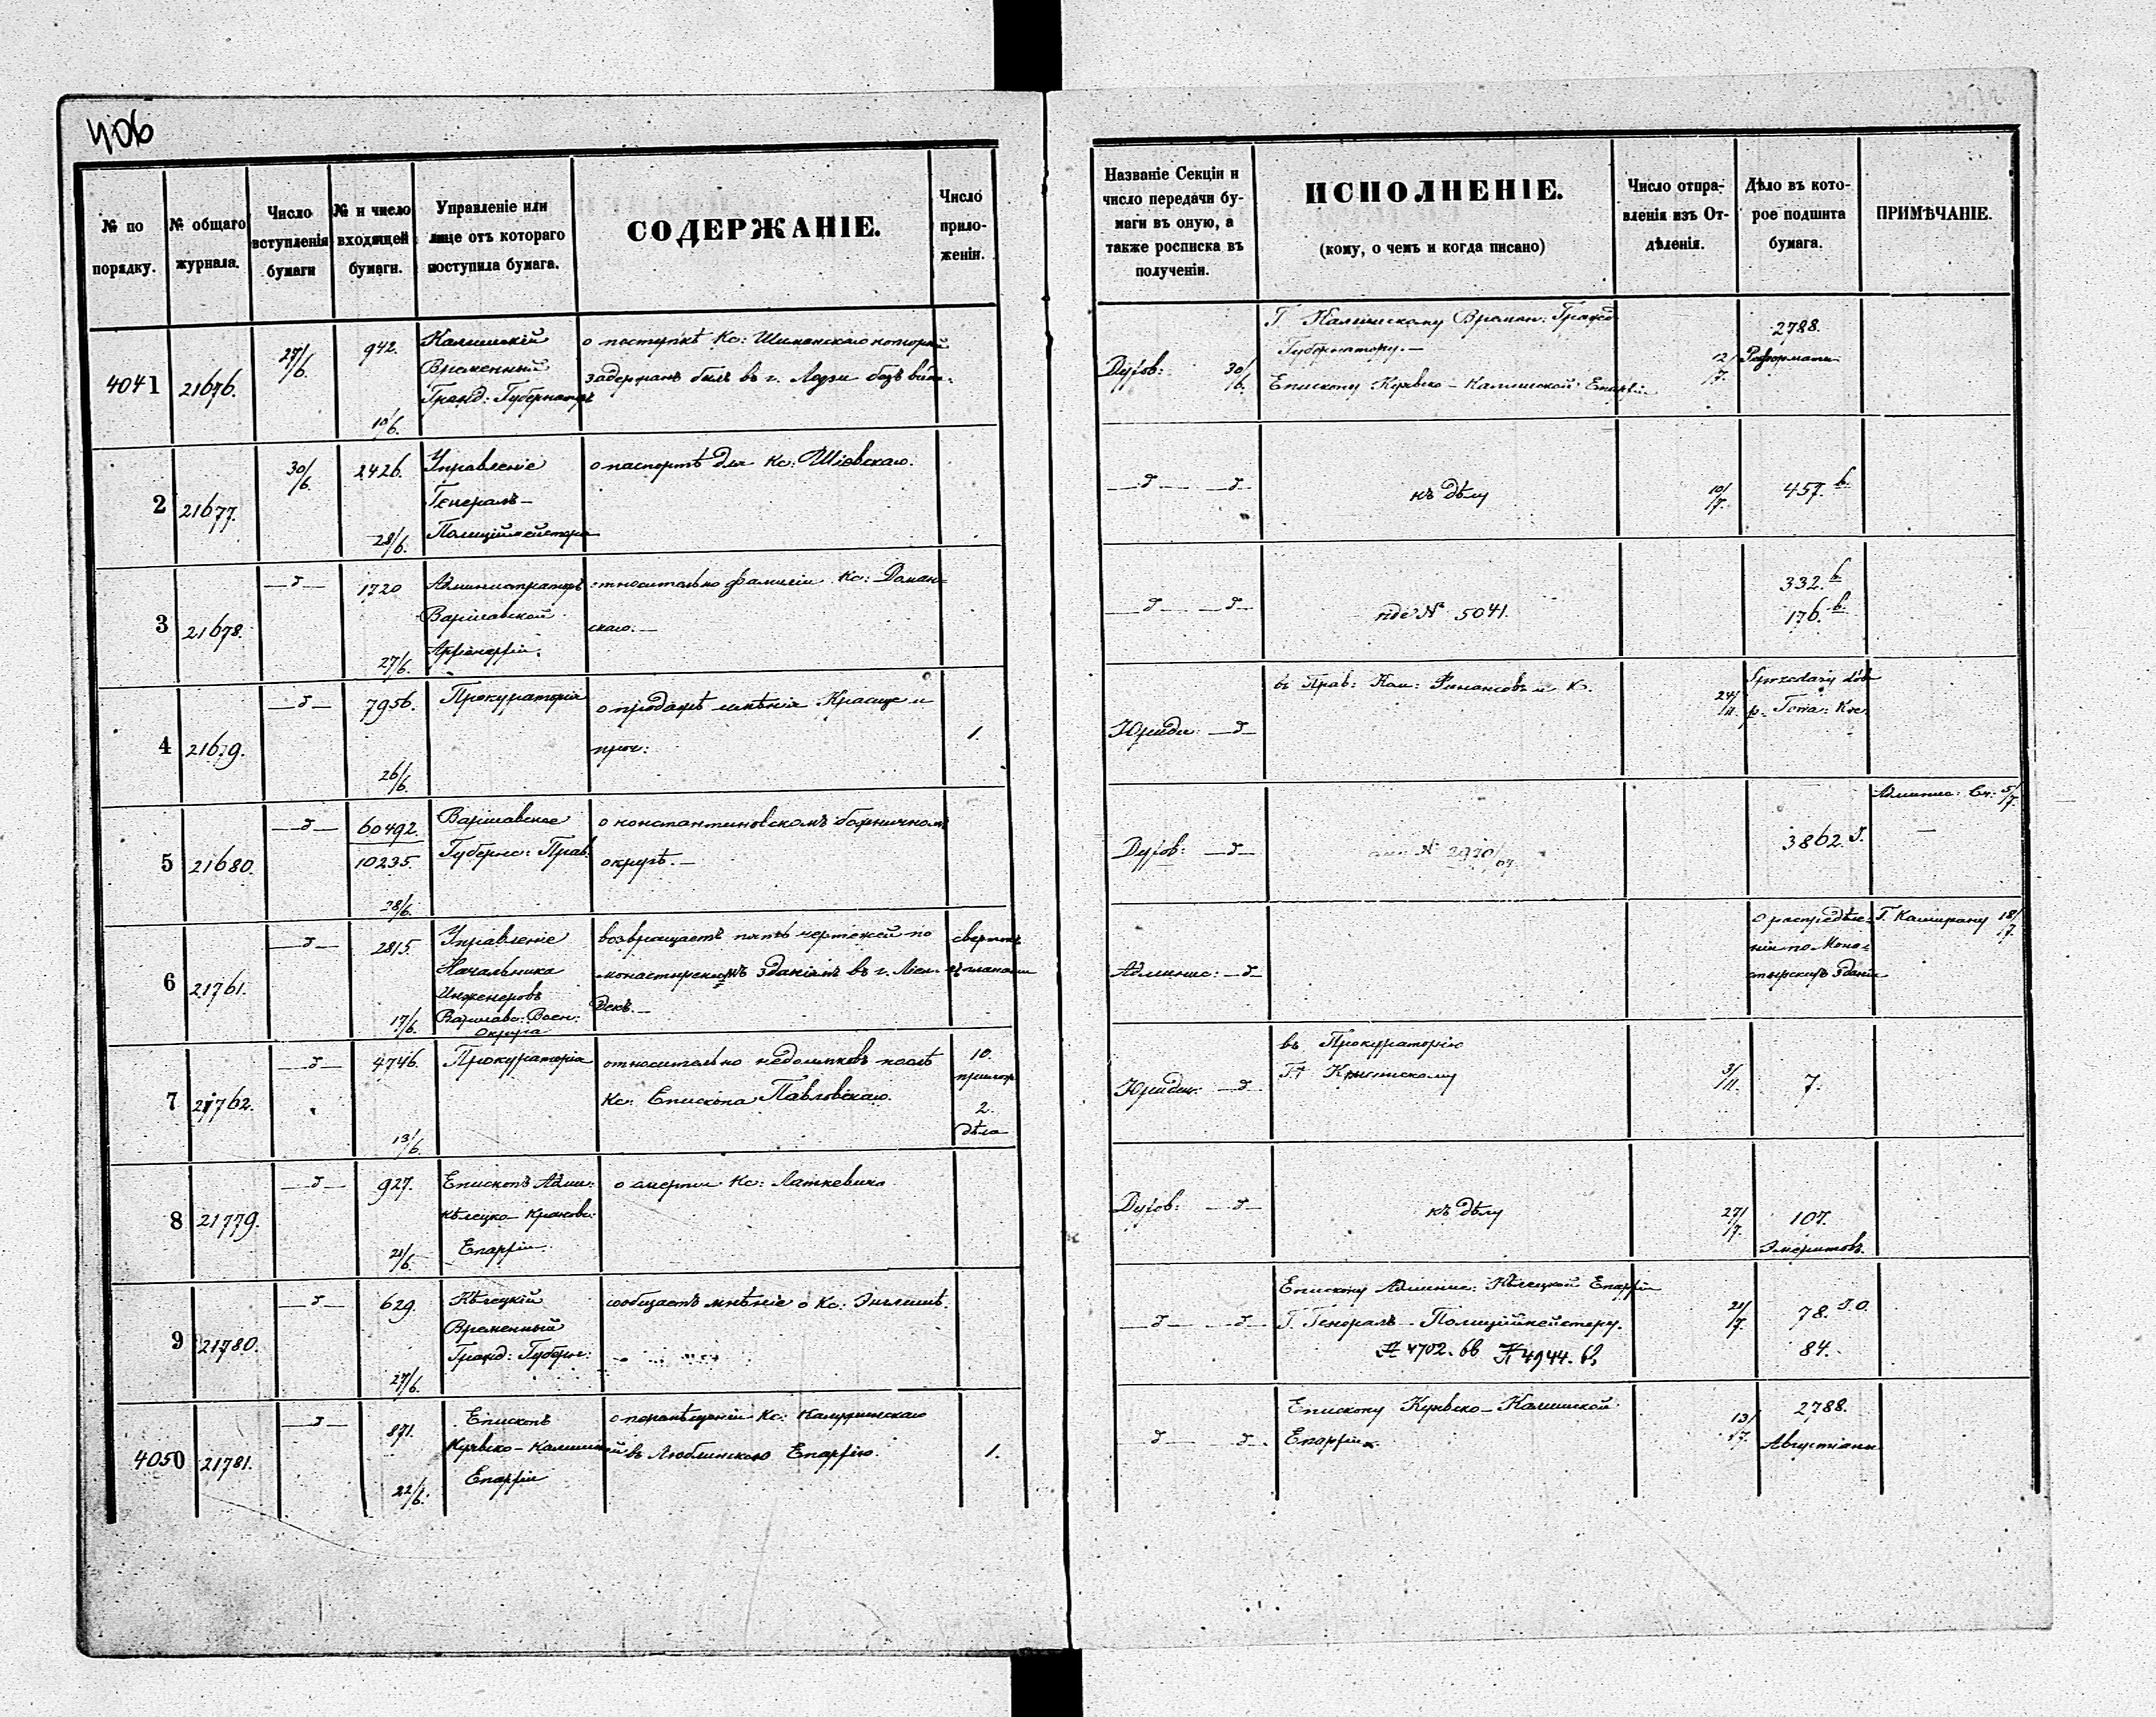 406
№ по порядку.
№ общаго журнала.
Число вступленія бумаги
№ и число входящей бумаги.
Управленіе или лице отъ котораго поступила бумага.
СОДЕРЖАНІЕ.
Число приложеній.
Названіе Секціи и число передачи бумаги въ оную, а также росписка въ полученіи.
ИСПОЛНЕНІЕ.
(кому, о чемъ и когда писано)
Число отправленія изъ Отдѣленія.
Дѣло въ которое подшита бумага.
ПРИМѢЧАНІЕ.
4041 21676. 27/6. 942. 10/6.
Калишскій
Временный
Гражд: Губернаторъ
о поступкѣ Кс: Шиманскаго который
задержанъ былъ въ г. Лодзи безъ
Духов: 30/6.
Г. Калишскому Времен: Гражд.
Губернатору.—
Епископу Куявско-Калишской Епархіи
12/7.
2788.
Реформати
2 21677. 30/6. 2426. 28/6.
Управленіе
Генералъ-
Полиціймейстера
о паспортѣ для Кс:
—д— —д—
къ дѣлу
10/7.
457. b.
3 21678. —д— 1720 27/6.
Администраторъ
Варшавской
Архіепархіи.
относительно фамиліи Кс: Доман-
скаго.—
—д— —д—
№ 5041.
332. b.
176. b.
4 21679. —д— 7956. 26/6.
Прокураторія
о продажѣ имѣнія Красице и
проч:
1.
Юриди: —д—
въ Прав: Ком: Финансовъ и К.
24/11.
Sprzedaży dóbr
5 21680. —д— 60492. 10235. 28/6.
Варшавское
Губернс: Прав.
о константиновскомъ божничномъ
округѣ.—
Духов: —д—
№ 2920/67.
3862. д.
Админис: Ст: 5/7.
6 21761. —д— 2815. 17/6.
Управленіе
Начальника
Инженеровъ
Варшавс: Воен:
Округа
возвращаетъ пять чертежей по
монастырскимъ зданіямъ въ г.
декъ.—
свертокъ
съ планами
Админис: —д—
О распредѣле-
ніи по Мона-
стырскихъ зданій
Г. Каширану 18/7.
7 21762. —д— 4746. 13/6.
Прокураторія
относительно недоимковъ послѣ
Кс: Епископа Павловскаго.
10.
прилож
2.
дѣла
Юридич. —д
въ Прокураторію
3/11.
7.
8 21779. —д— 927. 21/6.
Епископъ Адми:
Кѣлецко-Краковс:
Епархіи.
о смерти Кс: Латкевича
Духов: —д—
къ дѣлу
27/7.
107.
Эмеритовъ.
9 21780. —д— 629. 27/6.
Кѣлецкій
Временный
Гражд: Губерн:
сообщаетъ мнѣніе о Кс:
—д— —д—
Епископу Админис: Кѣлецкой Епархіи
Г. Генералъ-Полиціймейстеру.
№ 4702. 66 № 4944. 62
21/7.
78. д.о.
84.
4050 21781. —д— 871. 22/6.
Епископъ
Куявско-Калишской
Епархіи
о перемѣщеніи Кс:
въ Люблинскую Епархію.
1.
д— д.
Епископу Куявско-Калишской
Епархіи.
13/7.
2788.
Августіани